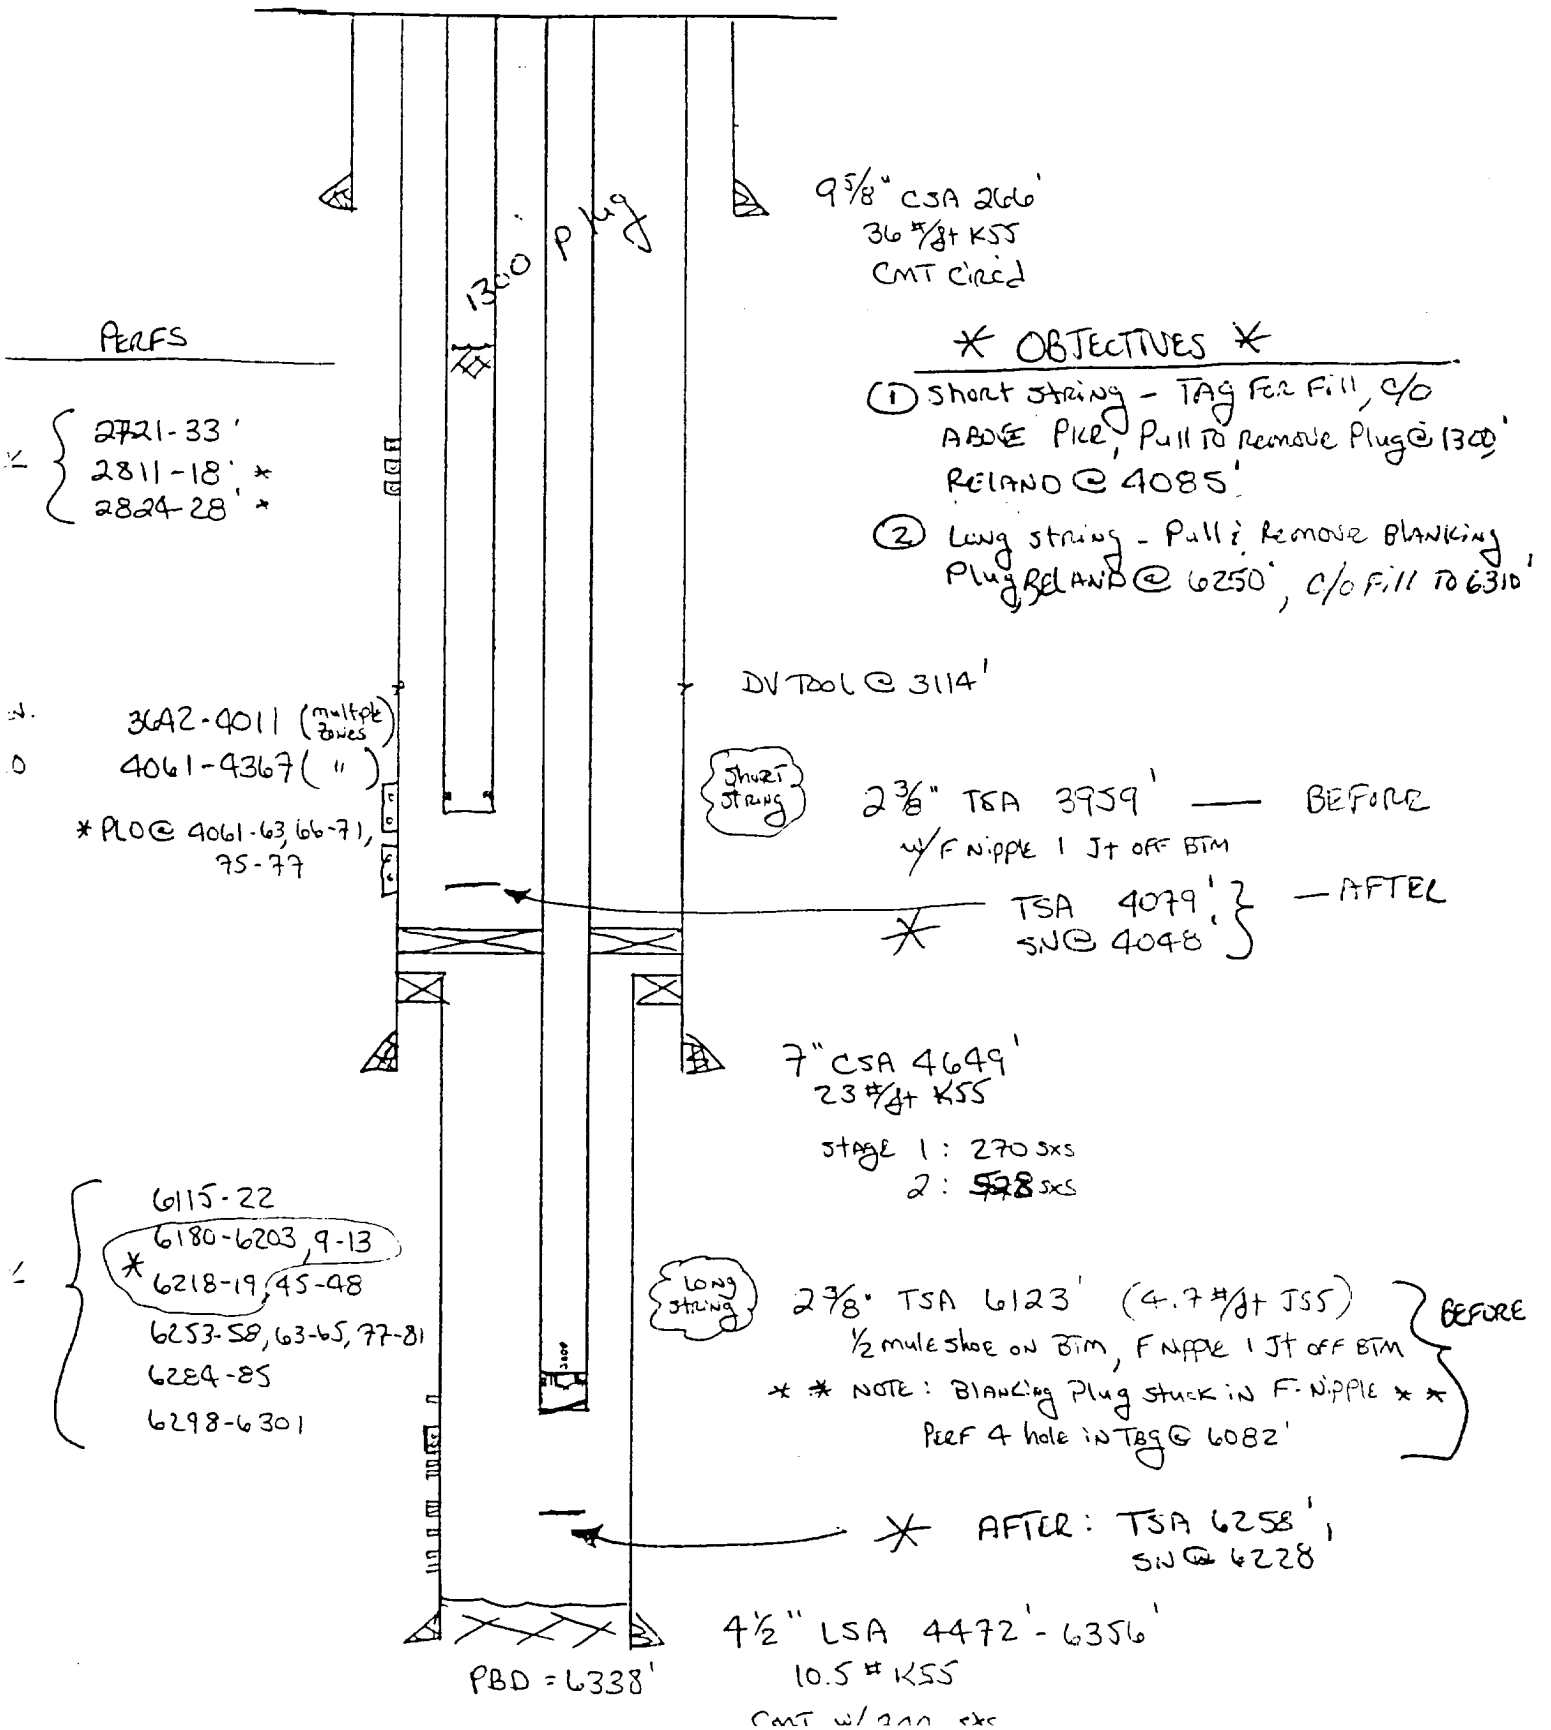 1300 Plug
9 5/8" CSA 266'
36 #/ft K55
CMT Circd
PERFS
2721-33'
2811-18' *
2824-28' *
* OBJECTIVES *
① Short string - TAg For Fill, c/o
ABOVE PKR, Pull To Remove Plug @ 1300,'
RELAND @ 4085'
② Long string - Pull & Remove BLANKing
Plug, RELAND @ 6250', c/o Fill To 6310'
DV TOOL @ 3114'
3642-4011 (multple Zones)
4061-4367 ( " )
* PLO @ 4061-63, 66-71,
75-77
Short
String
2 3/8" TSA 3959' — BEFORE
w/ F Nipple 1 Jt OFF BTM
TSA 4079' — AFTER
* SN @ 4048'
7" CSA 4649'
23 #/ft K55
Stage 1: 270 sxs
2: sxs
6115-22
6180-6203, 9-13
* 6218-19, 45-48
6253-58, 63-65, 77-81
6284-85
6298-6301
Long
String
2 3/8" TSA 6123' (4.7 #/ft J55) BEFORE
1/2 mule shoe on BTM, F NIPPLE 1 Jt OFF BTM
* * NOTE: BLANKing Plug Stuck in F-NiPPLE * *
PERF 4 hole in Tbg @ 6082'
* AFTER: TSA 6258',
SN @ 6228'
4 1/2" LSA 4472' - 6356'
10.5 # K55
PBD = 6338'
CMT w/ sxs